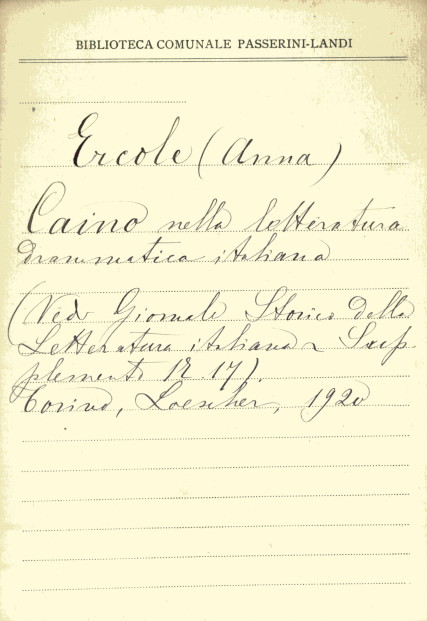 BIBLIOTECA COMUNALE PASSERINI-LANDI
Ercole (Anna)
Caino nella letteratura
drammatica italiana
(Vedi Giornale Storico della
Letteratura italiana Sup-
plemento 17).
Torino, Loescher, 1920